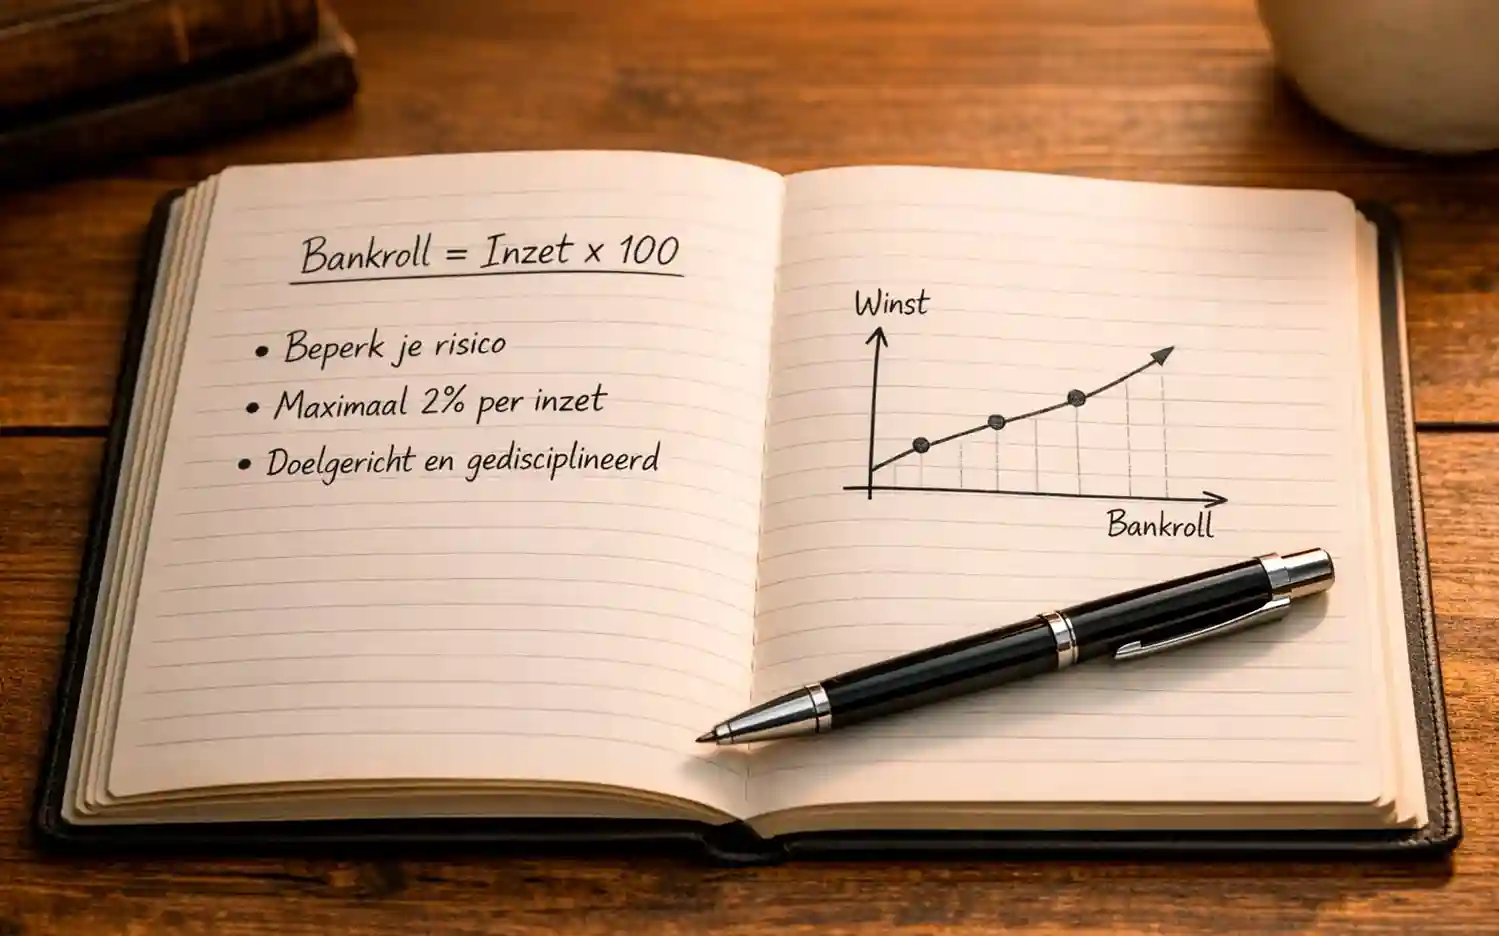 Bankroll = Inzet x 100
• Beperk je risico
• Maximaal 2% per inzet
• Doelgericht en gedisciplineerd
Winst
Bankroll